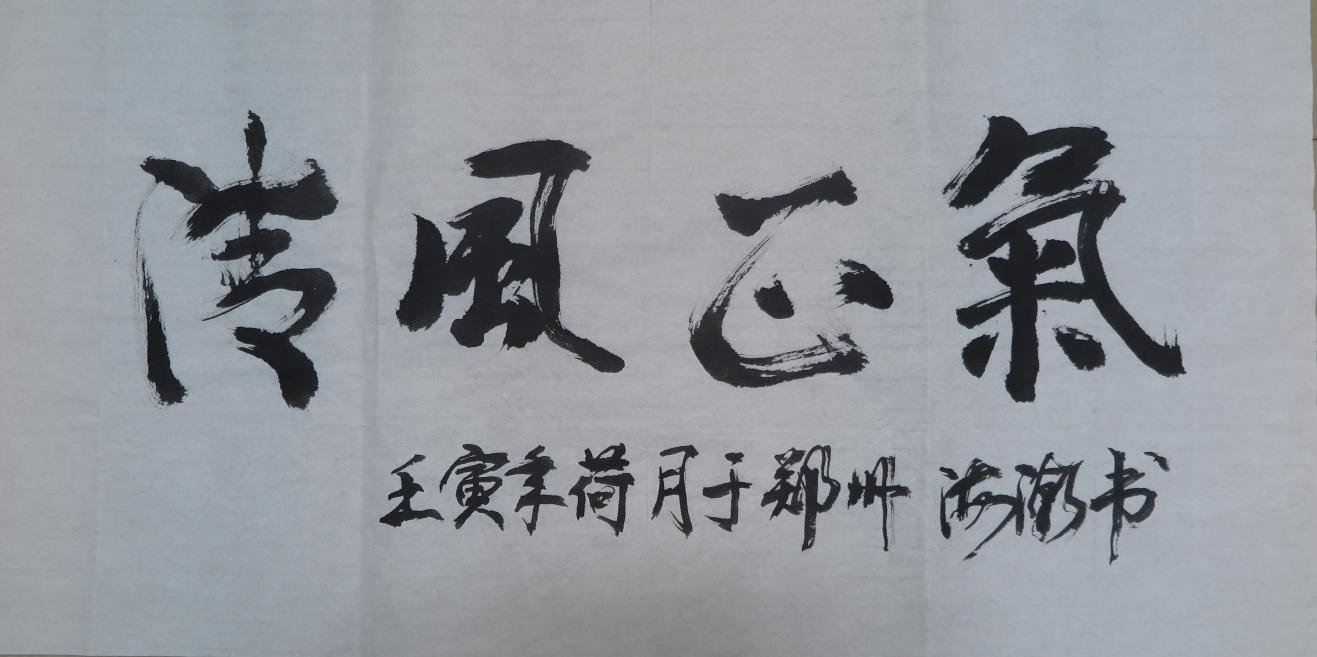 清风正氣
壬寅年荷月于郑州 海澎书